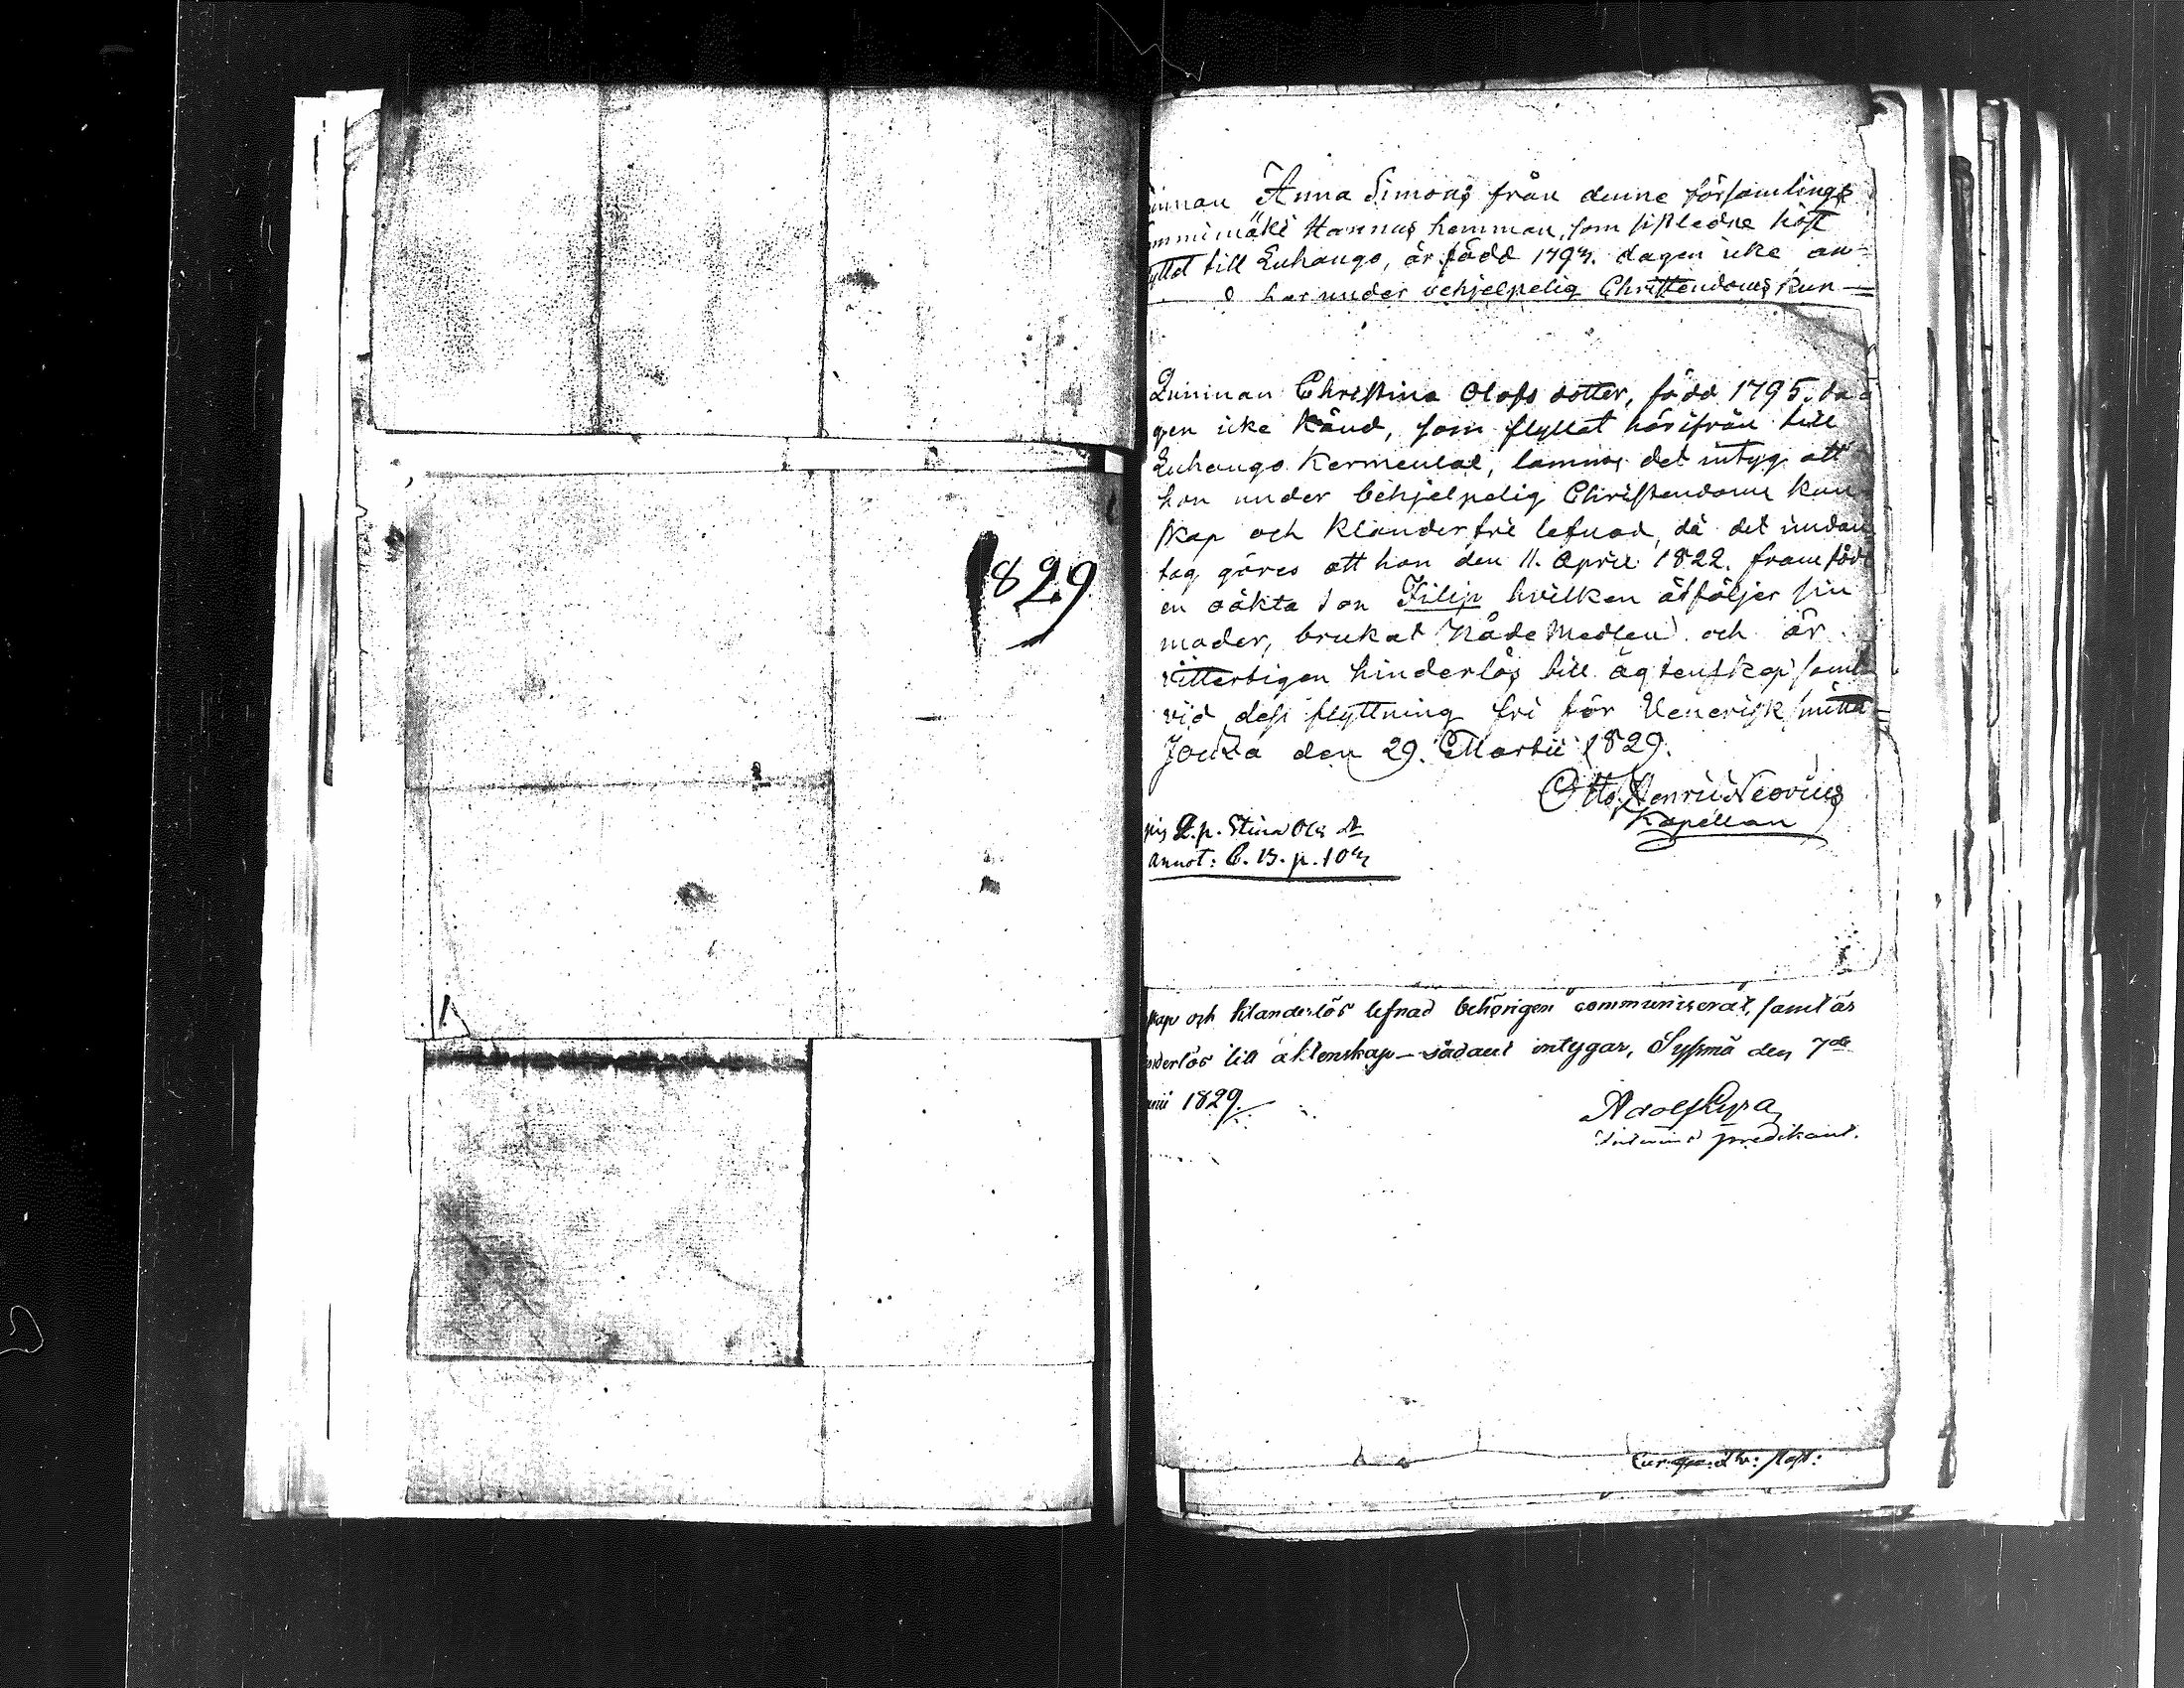 1829
innan Anna Simons från denne församlings
mmimäki Hannus hemman, som sistledne höst
yttat till Luhango, är född 1793. dagen icke an-
har under behjelpelig Christendoms kun-
Qvinnan Christina Olofs dotter, född 1795. da
gen icke känd, som flyttat härifrån till
Luhango lämnas det intyg att
hon under behjelpelig Christendoms kun
skap och klanderfri lefnad, då det undan
tag göres att hon den 11. April 1822. framfödt
en oäkta son Filip hvilken åtföljer sin
moder, brukat Nåde Medlen och är
vitterligen hinderlös till ägtenskap samt
vid dess flyttning fri för Venerisk smitta
Joutsa den 29. Martii 1829.
Otto Henric Neovius
Kapellan
p. Stina Ols dr
annot: C. B. p. 103
skap och klanderlös lefnad behörigen communicerat, samt är
nderlös till äktenskap – sådant intygar, Sysmä den 7de
1829.
Adolf
predikant.